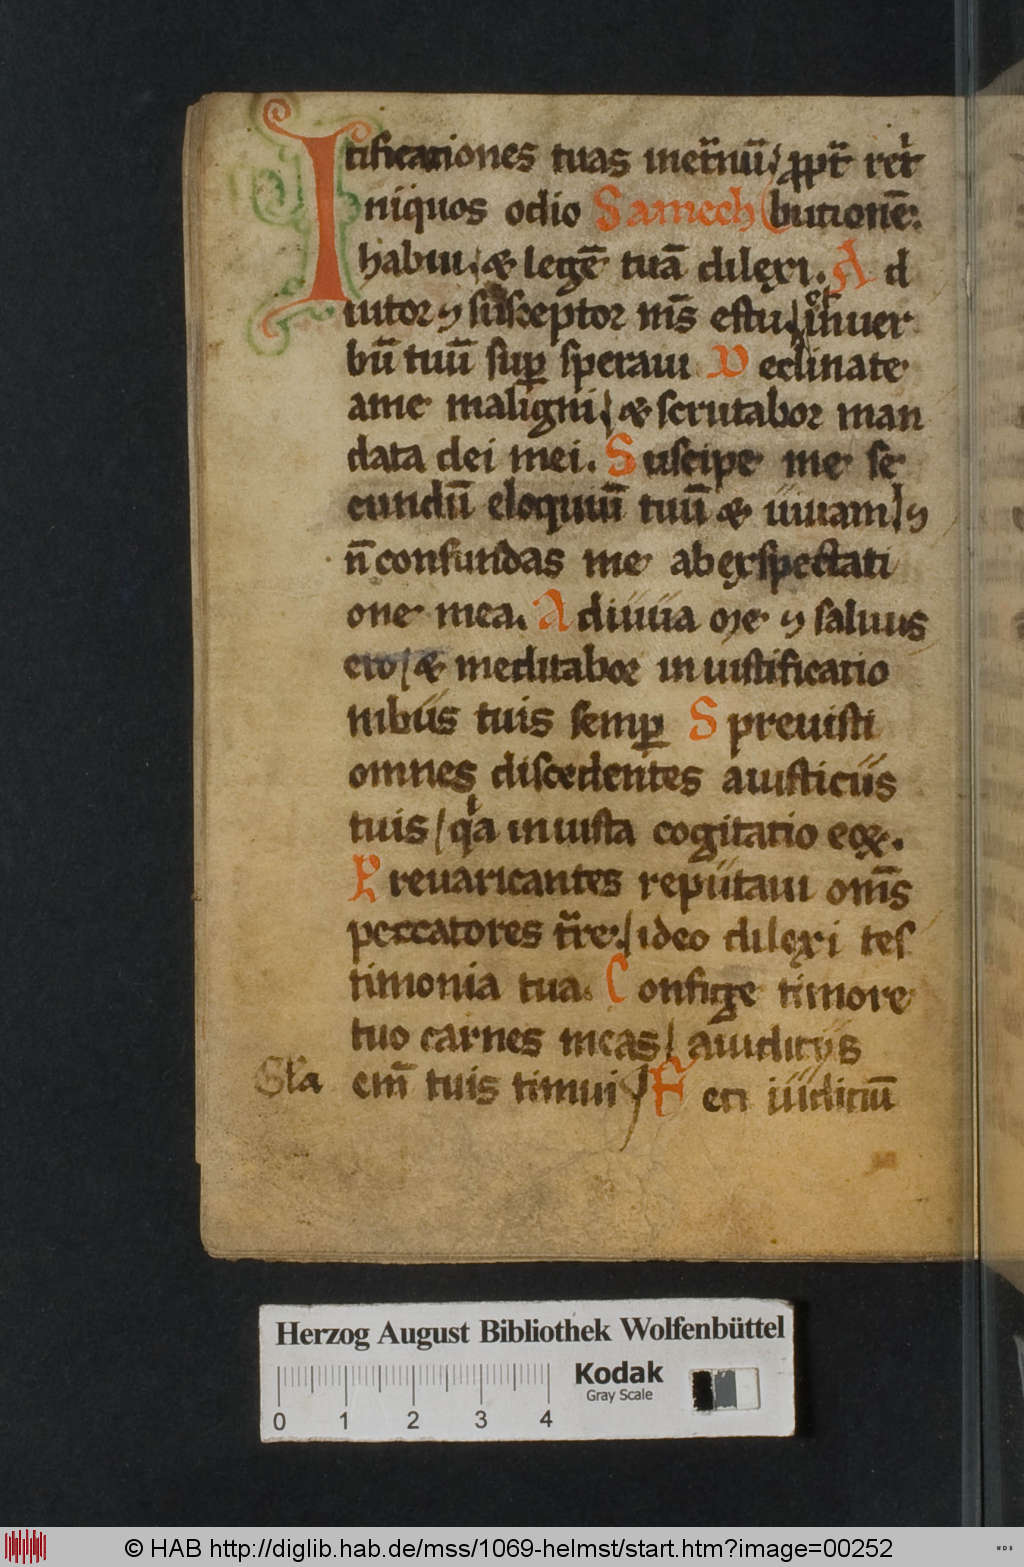 tificationes tuas inet̄nū / ꝓpt̄ ret̄
Iniquos odio Samech butionē.
habui / & legē tuā dilexi. A d
iutor ⁊ susceptor m̄s estu / et inuer
bū tuū suꝑ speraui D eclinate
ame maligni / & scrutabor man
data dei mei. S uscipe me se
cundū eloquiū tuū & uiuam / ⁊
n̄ confundas me abexspectati
one mea. A diuua me ⁊ saluus
ero / & meditabor iniustificatio
nibus tuis semꝑ S preuisti
omnes discedentes aiusticiis
tuis / qͥa iniusta cogitatio eoꝝ.
P reuaricantes reputaui om̄s
peccatores t̄re. / ideo dilexi tes
timonia tua. C onfige timore
tuo carnes meas / aiudicijs
Gl̄a em̄ tuis timui F eci iudiciū
Herzog August Bibliothek Wolfenbüttel
Kodak
Gray Scale
0 1 2 3 4
© HAB http://diglib.hab.de/mss/1069-helmst/start.htm?image=00252